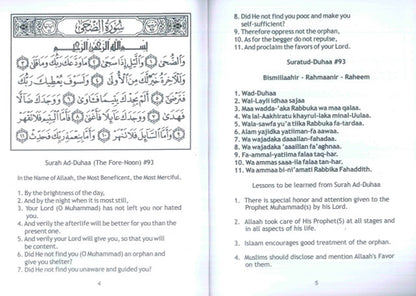 سورة الضحى
بسم الله الرحمن الرحيم
وَالضُّحَى وَاللَّيْلِ إِذَا سَجَى مَا وَدَّعَكَ رَبُّكَ وَمَا قَلَى
وَلَلْآخِرَةُ خَيْرٌ لَكَ مِنَ الْأُولَى وَلَسَوْفَ يُعْطِيكَ رَبُّكَ
فَتَرْضَى أَلَمْ يَجِدْكَ يَتِيمًا فَآوَى وَوَجَدَكَ ضَالًّا
فَهَدَى وَوَجَدَكَ عَائِلًا فَأَغْنَى فَأَمَّا الْيَتِيمَ فَلَا تَقْهَرْ
وَأَمَّا السَّائِلَ فَلَا تَنْهَرْ وَأَمَّا بِنِعْمَةِ رَبِّكَ فَحَدِّثْ
Surah Ad-Duhaa (The Fore-Noon) #93
In the Name of Allaah, the Most Beneficent, the Most Merciful.
1. By the brightness of the day,
2. And by the night when it is most still,
3. Your Lord (O Muhammad) has not left you nor hated you.
4. And verily the afterlife will be better for you than the present one.
5. And verily your Lord will give you, so that you will be content.
6. Did He not find you (O Muhammad) an orphan and give you shelter?
7. Did He not find you unaware and guided you?
4
8. Did He not find you poor and make you self-sufficient?
9. Therefore oppress not the orphan,
10. As for the begger do not repulse,
11. And proclaim the favors of your Lord.
Suratud-Duhaa #93
Bismillaahir - Rahmaanir - Raheem
1. Wad-Duhaa
2. Wal-Layli idhaa sajaa
3. Maa wadda-'aka Rabbuka wa maa qalaa.
4. Wa lal-Aakhiratu khayrul-laka minal-Uulaa.
5. Wala-sawfa yu'a tiika Rabbuka fa-tardaa.
6. Alam yajidka yatiiman-fa aawaa.
7. Wa wajadaka daaallan-fahadaa.
8. Wa wajadaka 'aaaillan fa'aghnaa.
9. Fa-ammal-yatiima falaa taq-har.
10. Wa ammas saaa-ila falaa tan-har.
11. Wa ammaa bi-ni'amati Rabbika Fahaddith.
Lessons to be learned from Surah Ad-Duhaa
1. There is special honor and attention given to the Prophet Muhammad(s) by his Lord.
2. Allaah took care of His Prophet(S) at all stages and in all aspects of his life.
3. Islaam encourages good treatment of the orphan.
4. Muslims should disclose and mention Allaah's Favor on them.
5